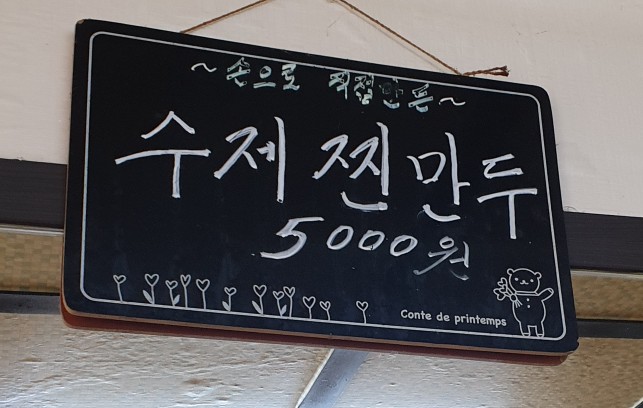 ~손으로 직접만든~
수제 찐만두
5000원
Conte de printemps